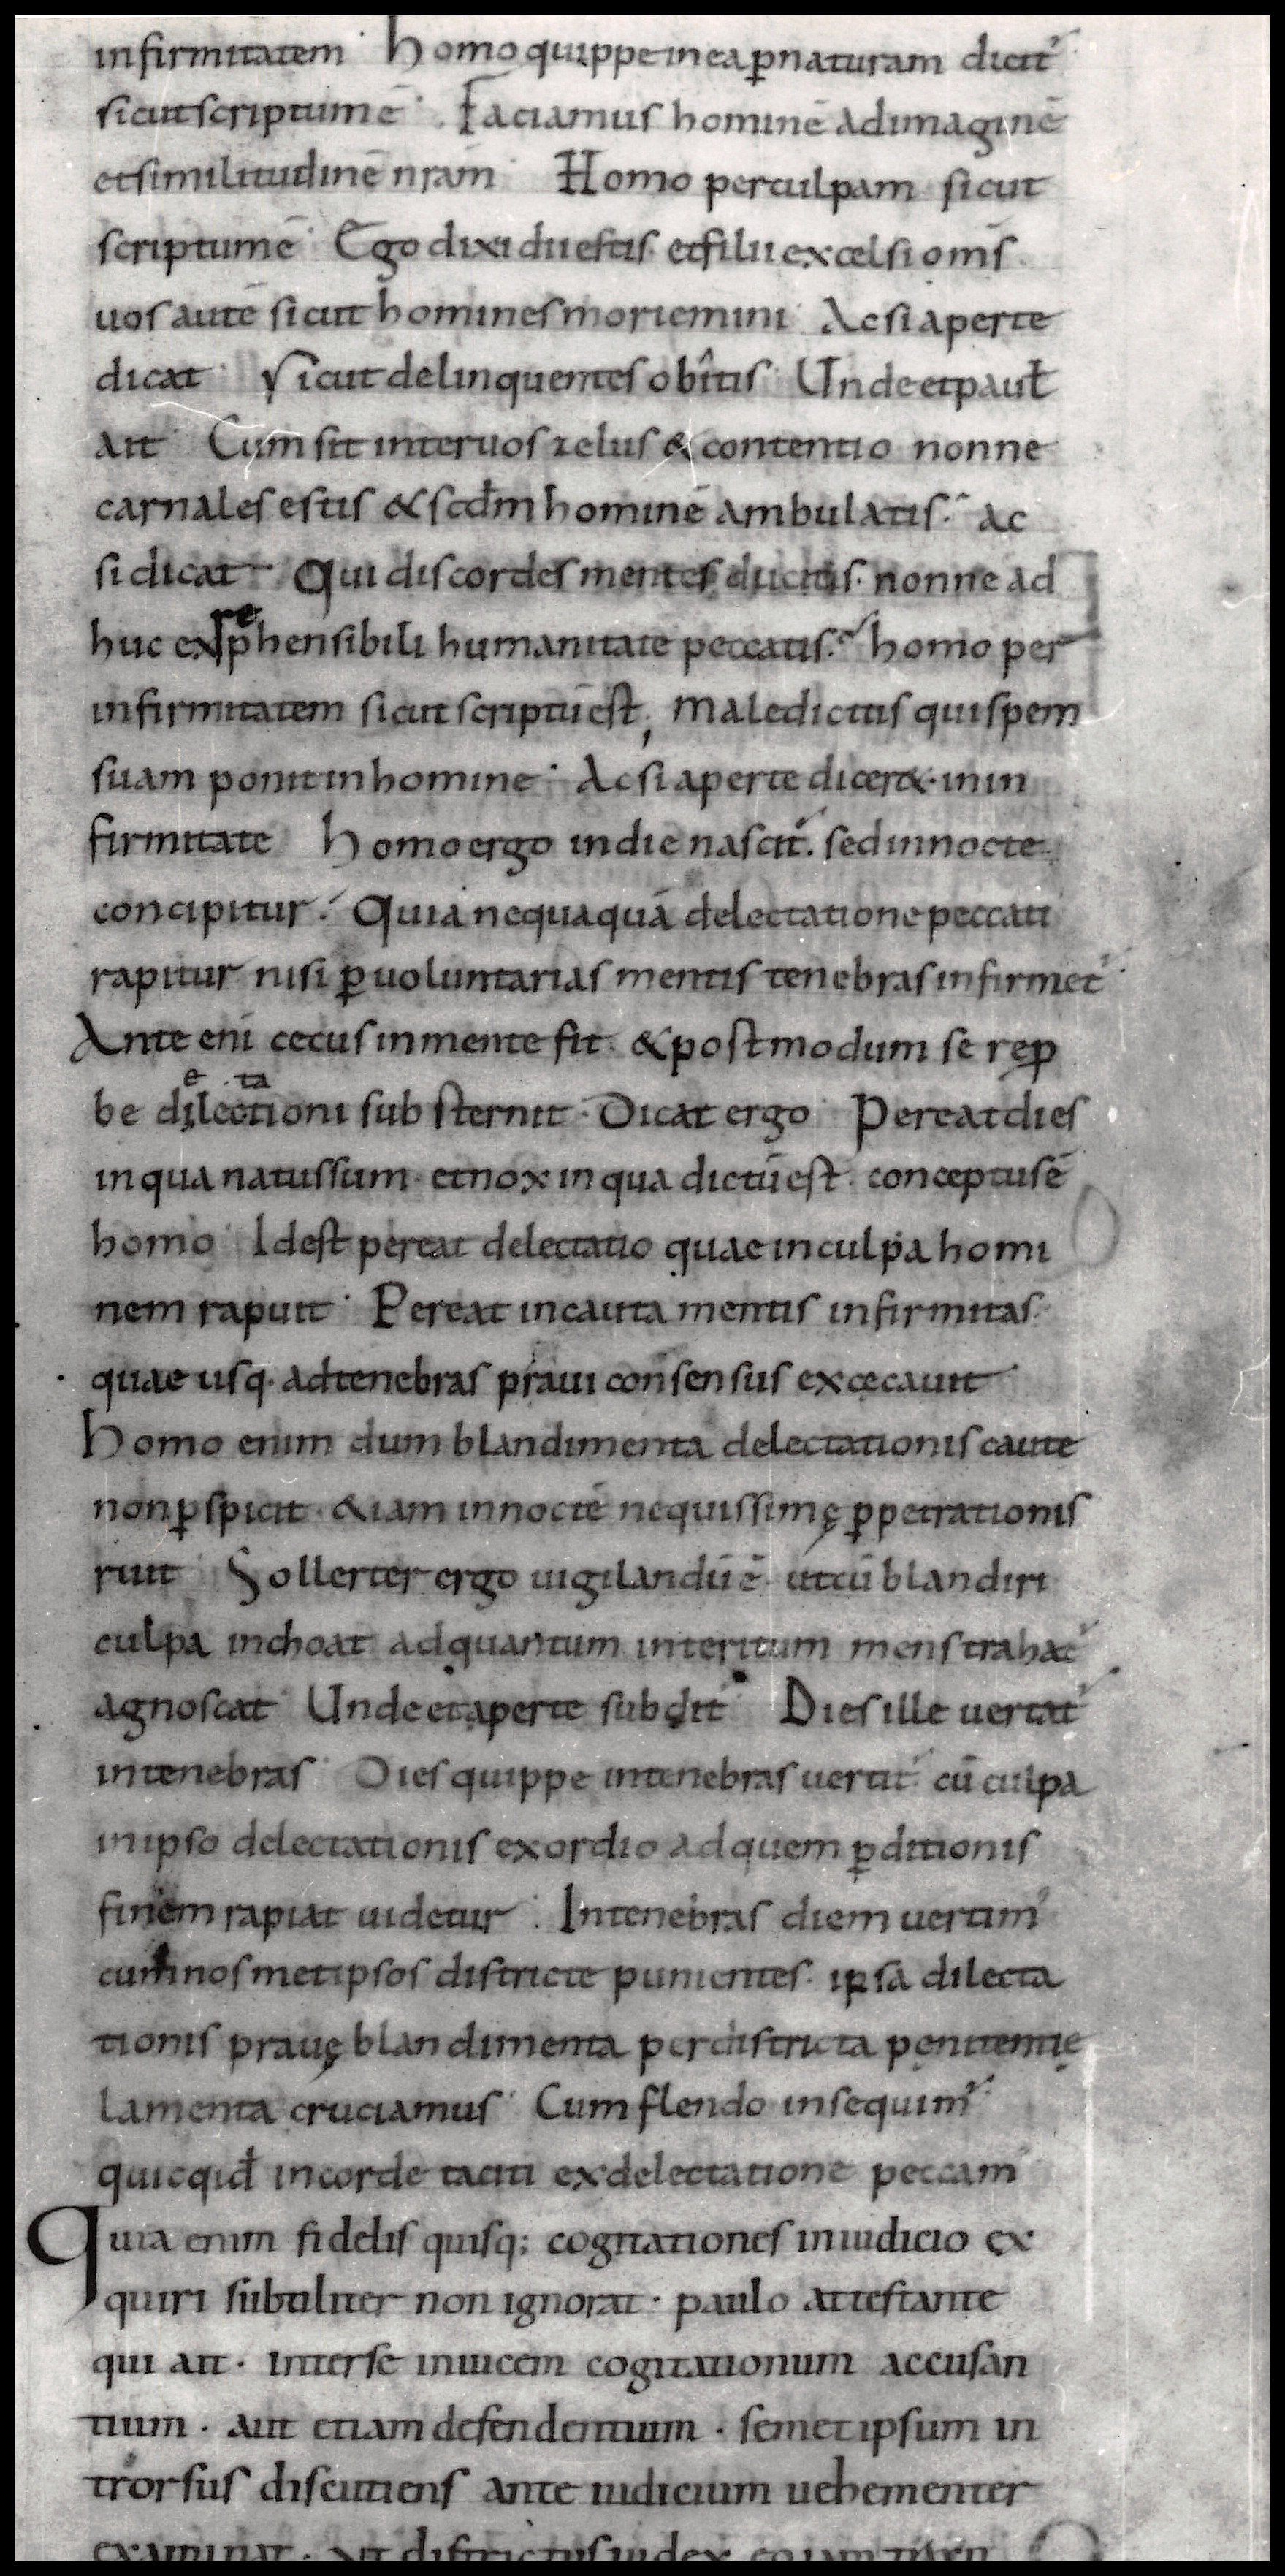 infirmitatem · Homo quippe in ea ꝑ naturam dicit᷑
sicut scriptum ē · Faciamus hominē ad imaginē
et similitudinē nr̄am · Homo per culpam sicut
scriptum ē · Ego dixi dii estis · et filii excelsi om̄s ·
uos autē sicut homines moriemini · Ac si aperte
dicat · Sicut delinquentes obitis · Unde et paul̄
ait · Cum sit inter uos zelus & contentio nonne
carnales estis & scd̄m hominē ambulatis · ac
si dicat · Qui discordes mentes ducitis · nonne ad
huc ex rep̄hensibili humanitate peccatis · homo per
infirmitatem sicut scriptū est; Maledictus qui spem
suam ponit in homine · Ac si aperte dicer& · in in
firmitate homo ergo in die nascit᷑ · sed in nocte
concipitur · Quia nequaquā delectatione peccati
rapitur nisi ꝑ uoluntarias mentis tenebras infirmet᷑ ·
Ante eni cecus in mente fit · & postmodum se rep̄
be dilectioni e ta substernit · Dicat ergo · Pereat dies
in qua natus sum · et nox in qua dictū est · conceptus ē
homo · Id est pereat delectatio quae in culpa homi
nem rapuit · Pereat incauta mentis infirmitas ·
quae usq· ad tenebras praui consensus excecauit ·
Homo enim dum blandimenta delectationis caute
non ꝑspicit · & iam in noctē nequissimę ꝑpetrationis
ruit · Sollerter ergo uigilandū ē · ut cū blandiri
culpa inchoat ad quantum interitum mens trahat᷑
agnoscat · Unde et aperte subdit · Dies ille uertat᷑
in tenebras · Dies quippe in tenebras uertit᷑ cū culpa
in ipso delectationis exordio ad quem ꝑditionis
finem rapiat uidetur · In tenebras diem uertim᷑
cum nosmetipsos districte punientes · ipsa dilecta
tionis prauę blandimenta per districta penitentię
lamenta cruciamus · Cum flendo insequim᷑
quicqid̄ in corde taciti ex delectatione peccam᷑
Quia enim fidelis quisq; cogitationes in iudicio ex
quiri subtiliter non ignorat · paulo attestante
qui ait · inter se inuicem cogitationum accusan
tium · aut etiam defendentium · semetipsum in
trorsus discutiens ante iudicium uehementer
examinat · ut districtus iudex eo iam